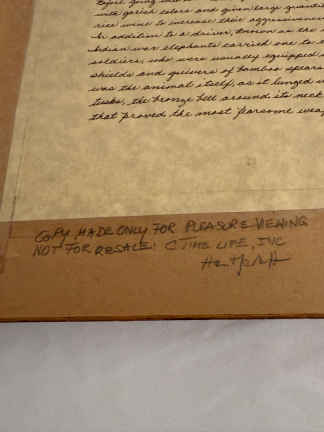 Before going int
with garish colors and given large quanti
rice wine to increase their aggressivenes
In addition to a driver, known as the
Indian war elephants carried one to
soldiers, who were usually equipped
shields and quivers of bamboo spears
was the animal itself, as it lunged w
tusks, the bronze bell around its neck
that proved the most fearsome weap
COPY MADE ONLY FOR PLEASURE VIEWING
NOT FOR RESALE! © TIME LIFE, INC